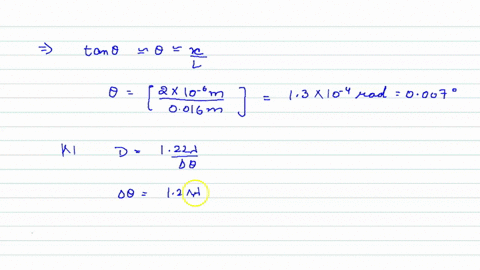 ⇒ tanθ ≈ θ ≈ x/L
θ = [2×10⁻⁶m / 0.016m] = 1.3×10⁻⁴ rad = 0.007°
D = 1.22λ/Δθ
Δθ = 1.2λ